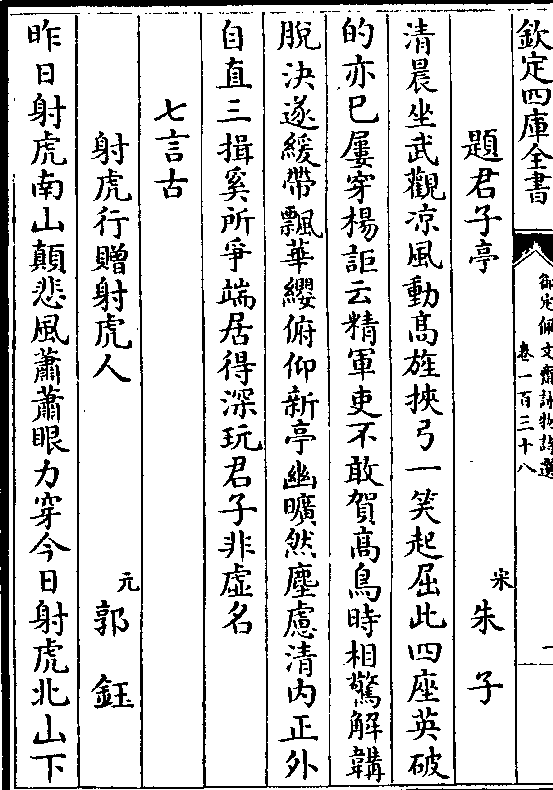 欽定四庫全書
御定佩文齋詠物詩選
卷一百三十八
題君子亭
宋朱子
清晨坐武觀凉風動髙旌挾弓一笑起屈此四座英破
的亦已屢穿楊詎云精軍吏不敢賀髙鳥時相驚解韝
脫決遂緩帶飄華纓俯仰新亭幽曠然塵慮清内正外
自直三揖奚所爭端居得深玩君子非虛名
七言古
射虎行贈射虎人
元郭鈺
昨日射虎南山顛悲風蕭蕭眼力穿今日射虎北山下